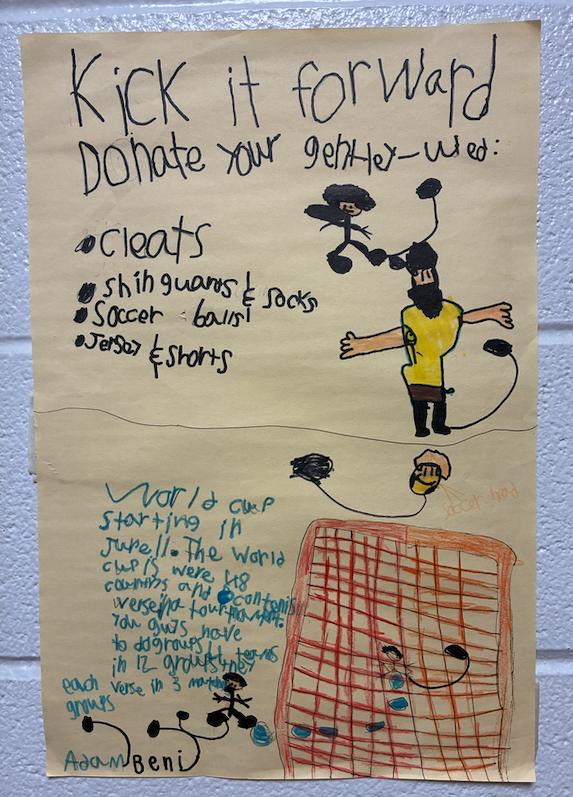 Kick it forward
Donate your gentley-used:
• cleats
• shin guards & socks
• Soccer balls
• Jersey & shorts
World cup
starting in
June 11. The World
cup is were 48
countries and contenis
verse in a tournament.
You guys have
to do groups 4 teams
in 12 groups they
verse in 3 matches
each
groups
soccer head
Adam Beni